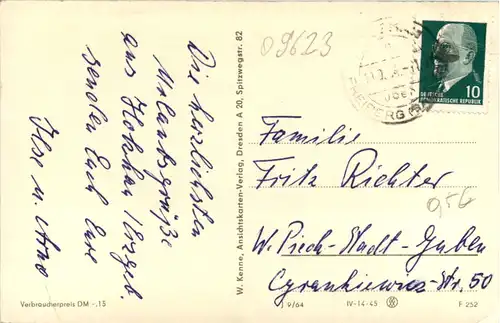 Die herzlichsten
Urlaubsgrüße
aus Holzhau / Erzgeb.
senden Euch Eure
Ilse u. Arno
Verbraucherpreis DM -,15
W. Kenne, Ansichtskarten-Verlag, Dresden A 20, Spitzwegstr. 82
09623
DEUTSCHE
DEMOKRATISCHE REPUBLIK
10
Familie
Fritz Richter
W. Pieck-Stadt-Guben
Cyrankiewicz-Str. 50
J 9/64
IV-14-45
F 252